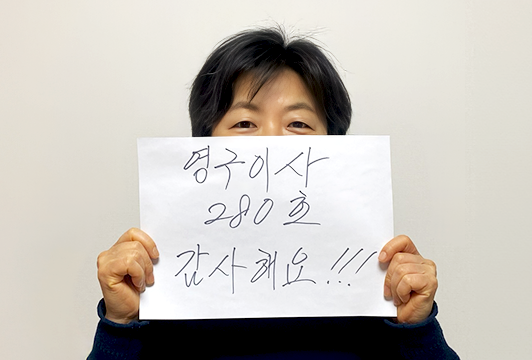 영구이사
280호
감사해요!!!